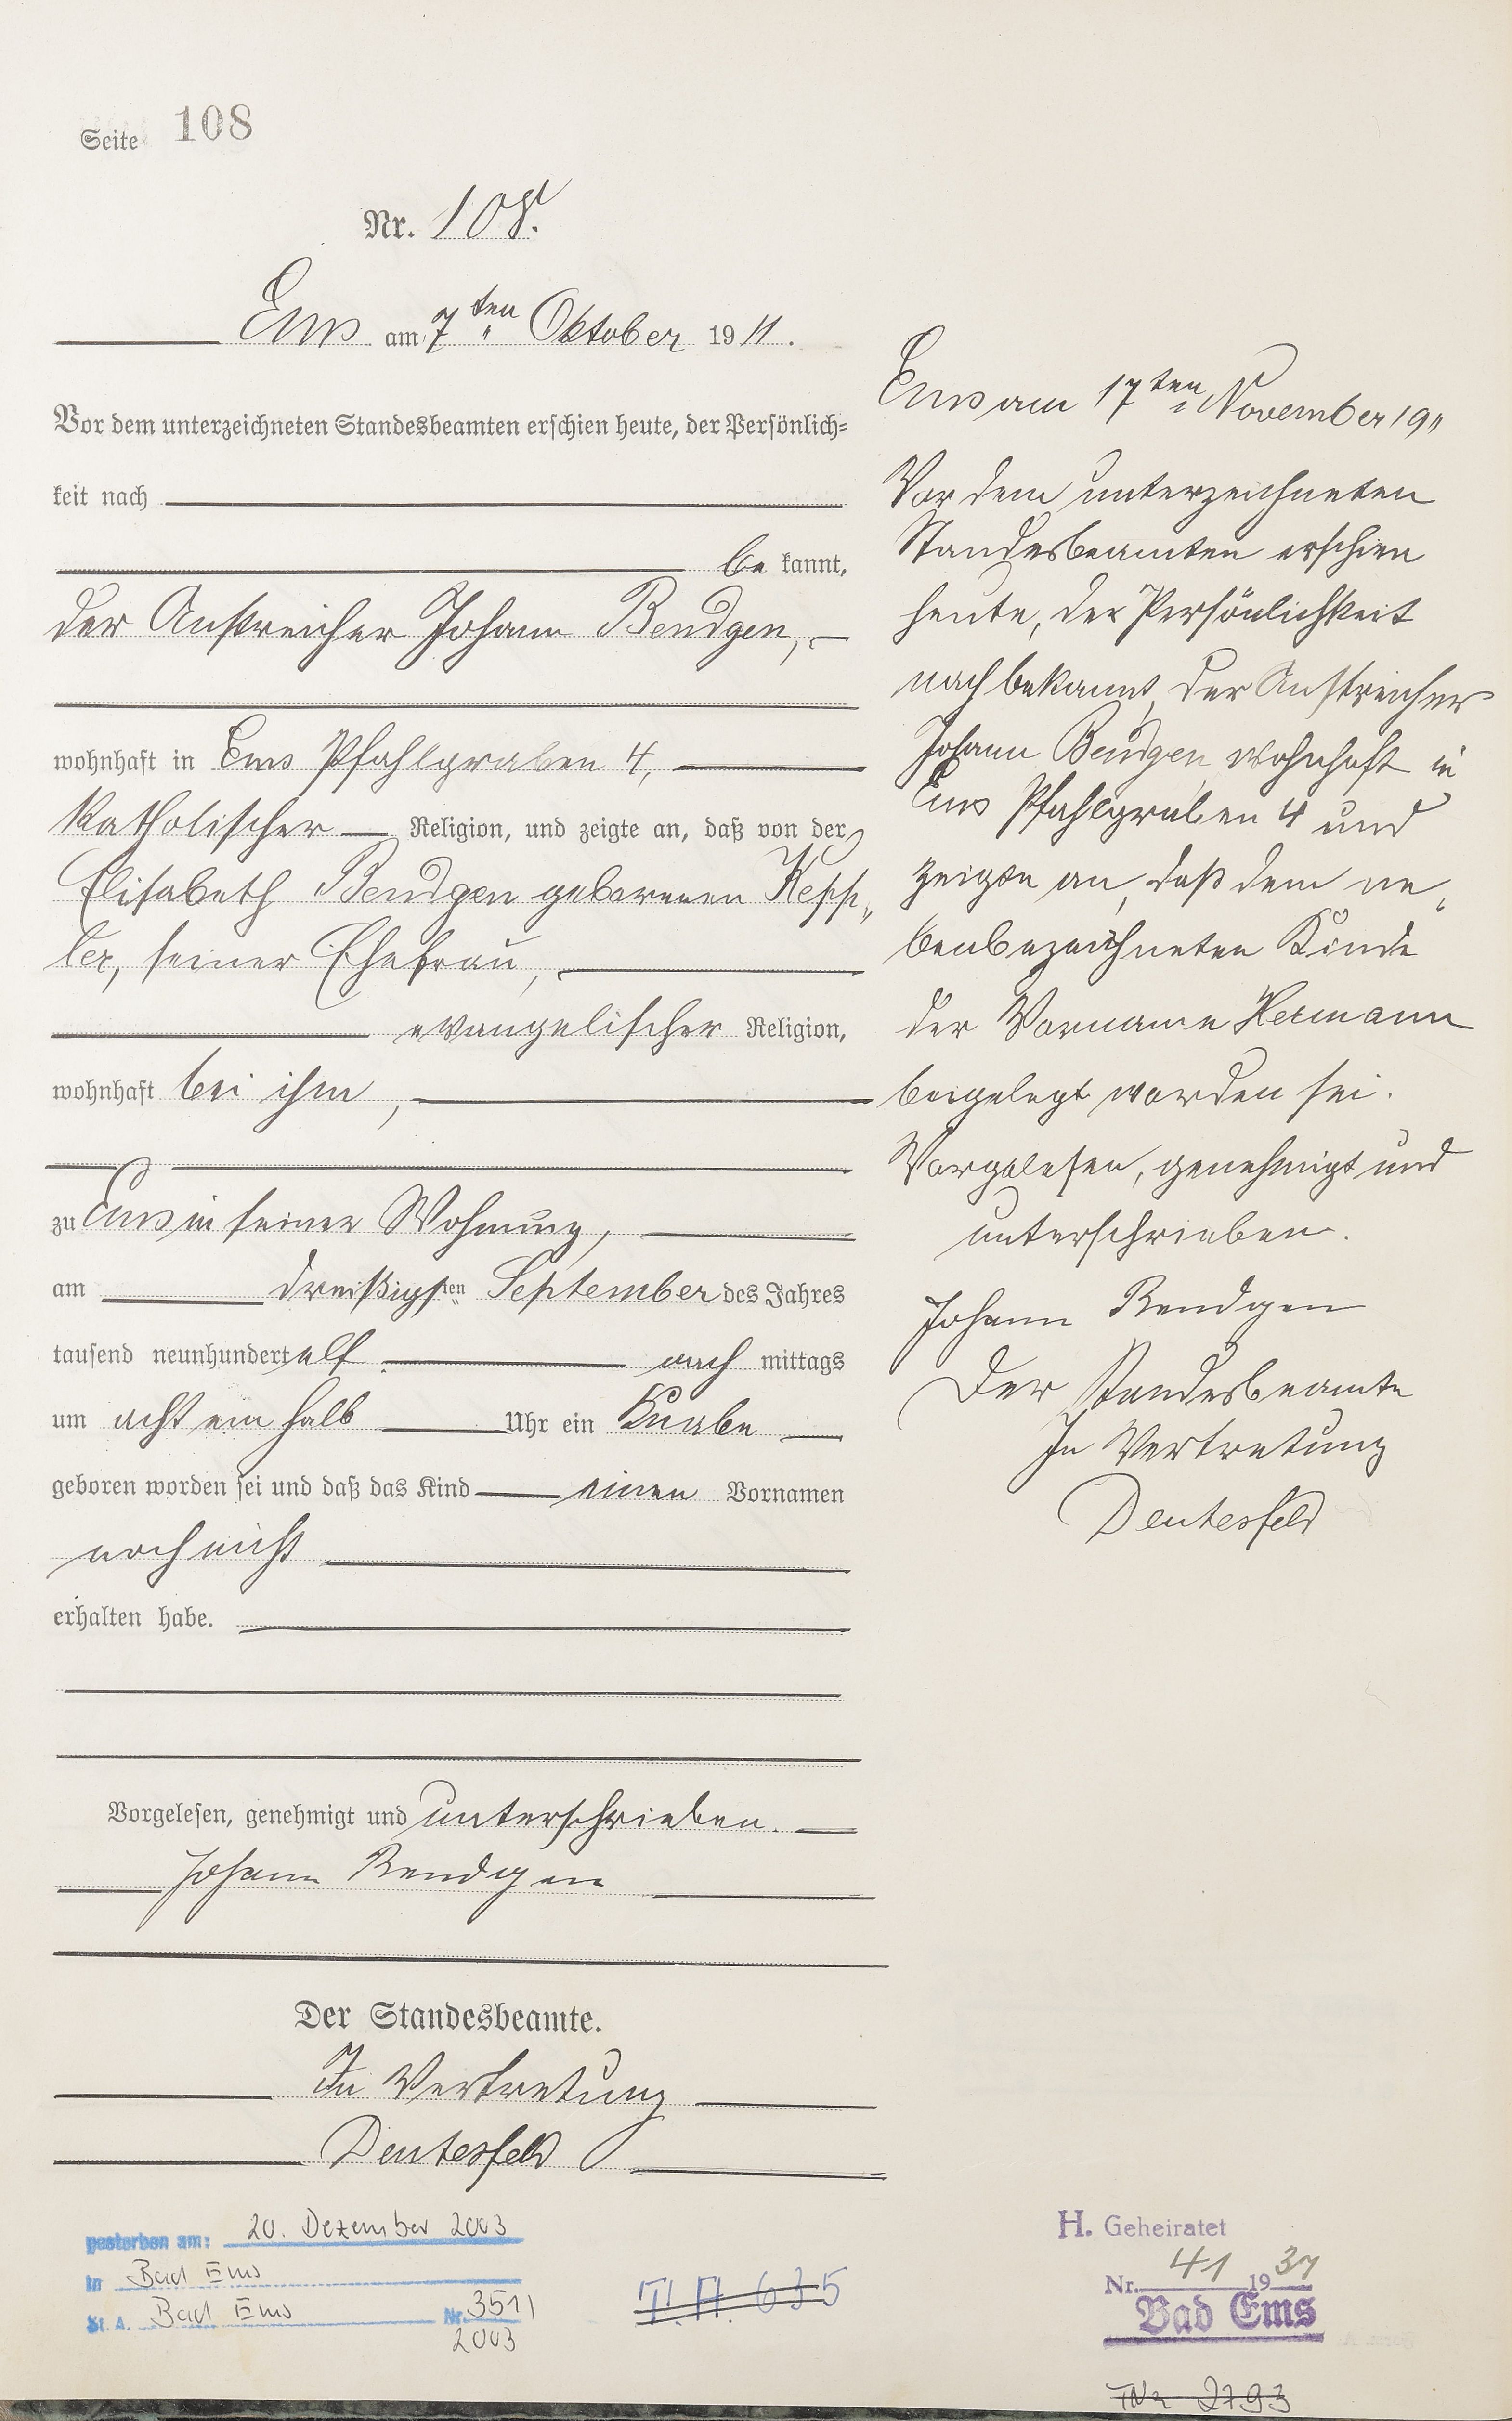 Seite 108
Nr. 108.
Ems am 7ten Oktober 1911.
Vor dem unterzeichneten Standesbeamten erschien heute, der Persönlich=
keit nach
be kannt,
der Anstreicher Johann Bendgen,
wohnhaft in Ems Pfahlgraben 4,
katholischer Religion, und zeigte an, daß von der
Elisabeth Bendgen geborenen Kepp„
ler, seiner Ehefrau,
evangelischer Religion,
wohnhaft bei ihm,
zu Ems in seiner Wohnung,
am dreißigsten September des Jahres
tausend neunhundert elf nach mittags
um acht ein halb Uhr ein Knabe
geboren worden sei und daß das Kind einen Vornamen
noch nicht
erhalten habe.
Vorgelesen, genehmigt und unterschrieben.
Johann Bendgen
Der Standesbeamte.
In Vertretung
Deutesfeld
gestorben am: 20. Dezember 2003
in Bad Ems
St. A. Bad Ems Nr. 351/
2003
T. A. 635
Ems am 17ten November 1911
Vor dem unterzeichneten
Standesbeamten erschien
heute, der Persönlichkeit
nach bekannt, der Anstreicher
Johann Bendgen wohnhaft in
Ems Pfahlgraben 4 und
zeigte an, daß dem ne„
benbezeichneten Kinde
der Vorname Hermann
beigelegt worden sei.
Vorgelesen, genehmigt und
unterschrieben.
Johann Bendgen
Der Standesbeamte
In Vertretung
Deutesfeld
H. Geheiratet
Nr. 41 1937
Bad Ems
2793